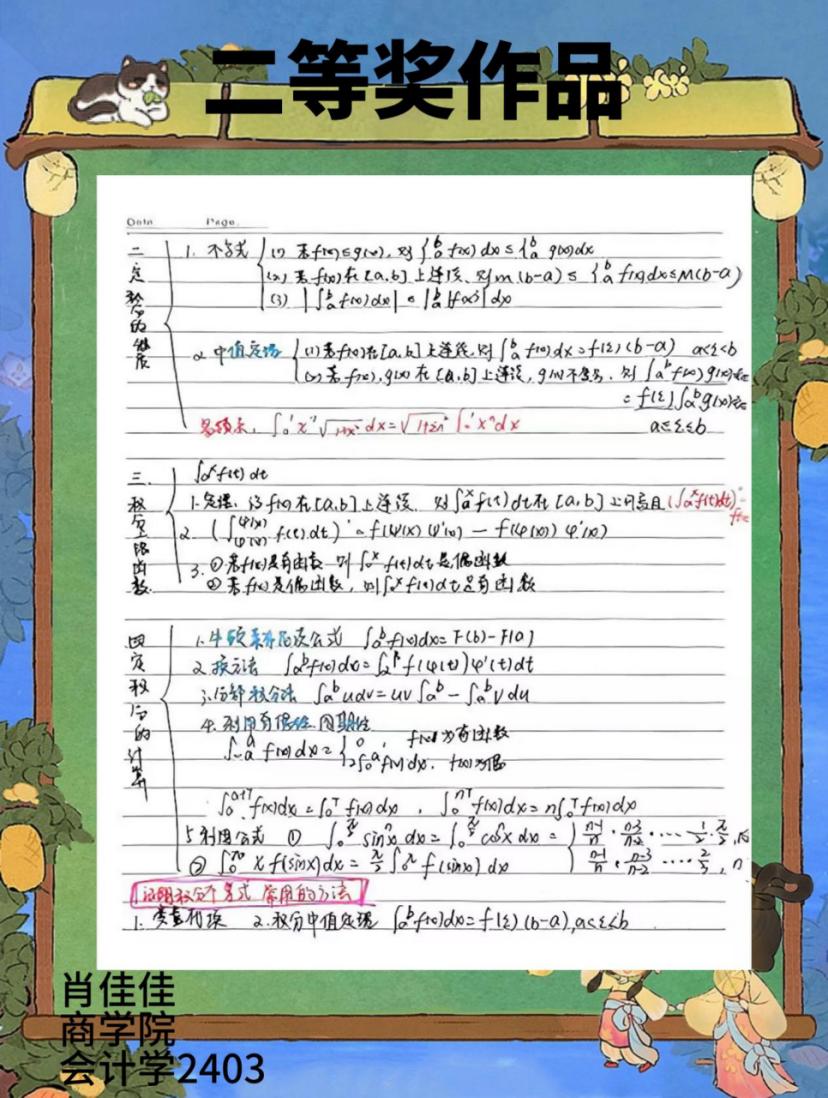 二等奖作品
Date Page.
二定积分的性质
1. 不等式 (1) 若f(x)≤g(x), 则∫ₐᵇ f(x) dx ≤ ∫ₐᵇ g(x)dx
(2) 若f(x)在[a,b]上连续, 则 m(b-a) ≤ ∫ₐᵇ f(x)dx ≤ M(b-a)
(3) |∫ₐᵇ f(x) dx| ≤ ∫ₐᵇ |f(x)| dx
2. 中值定理 (1) 若f(x)在[a,b]上连续, 则∫ₐᵇ f(x) dx = f(ξ)(b-a) a<ξ<b
(2) 若f(x), g(x)在[a,b]上连续, g(x)不变号, 则∫ₐᵇ f(x)g(x)dx
= f(ξ)∫ₐᵇ g(x)dx
a≤ξ≤b
三. 积分上限函数
∫ₐˣ f(t) dt
1. 定理: 设f(x)在[a,b]上连续 则∫ₐˣ f(t)dt在[a,b]上可高且(∫ₐˣ f(t)dt)'
2. f(t)dt)' = f(ψ(x)) ψ'(x) - f(φ(x)) φ'(x)
3. ① 若f(x)是奇函数 则∫₀ˣ f(t)dt是偶函数
② 若f(x)是偶函数, 则∫₀ˣ f(t)dt是奇函数
四定积分的计算
1. 牛顿莱布尼茨公式 ∫ₐᵇ f(x)dx = F(b) - F(a)
2. 换方法 f(φ(t))φ'(t)dt
3. 分部积分法 ∫ₐᵇ udv = uv ∫ₐᵇ - ∫ₐᵇ vdu
4. 利用奇偶性 周期性
∫₋ₐᵃ f(x)dx = { 0, f(x)为奇函数
2∫₀ᵃ f(x)dx. f(x)为偶
∫ₐᵃ⁺ᵀ f(x)dx = ∫₀ᵀ f(x)dx, ∫₀ⁿᵀ f(x)dx = n∫₀ᵀ f(x)dx
5 利用公式 ①
② ∫₀^π x f(sinx)dx = π/2 ∫₀^π f(sinx) dx
证明积分不等式 常用的方法
1. 变量代换 2. 积分中值定理 ∫ₐᵇ f(x)dx = f(ξ)(b-a), a<ξ<b
肖佳佳
商学院
会计学2403